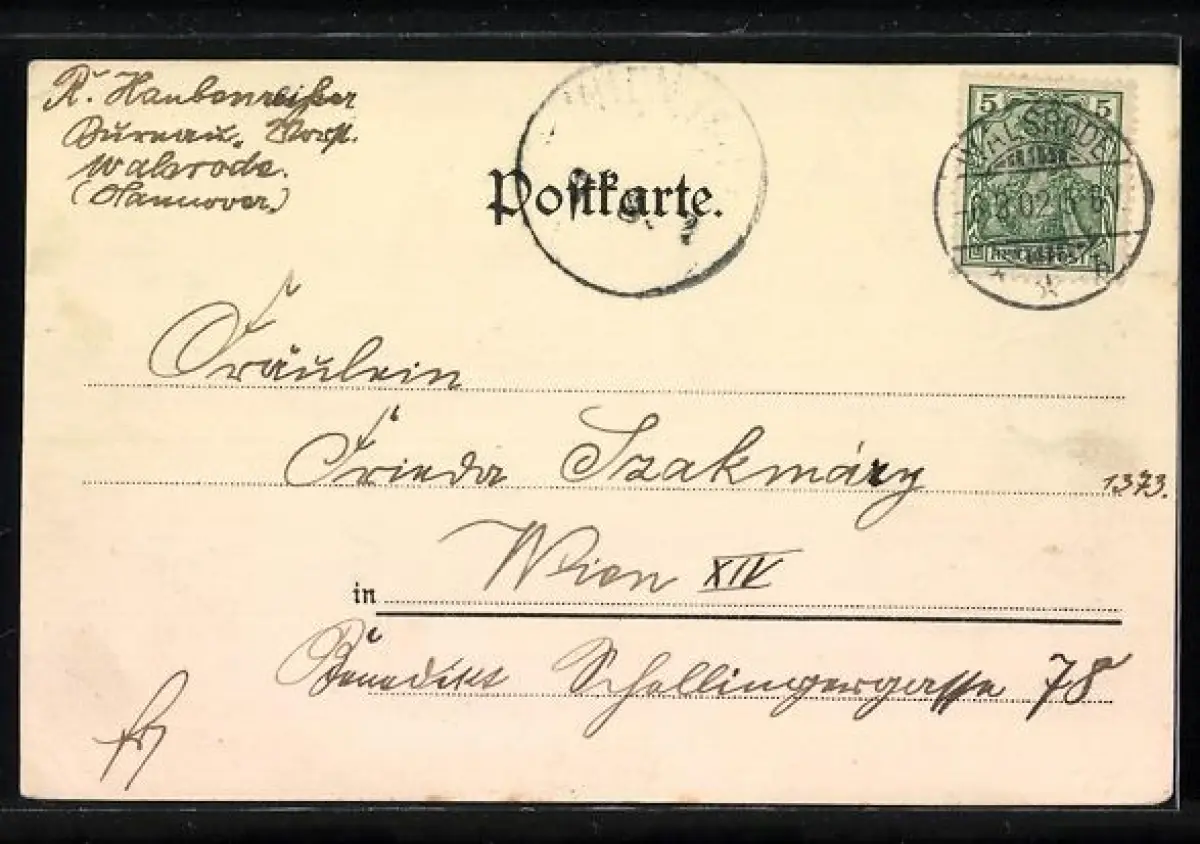 R. Haubenreißer
Bureau. Vorst.
Walsrode.
(Hannover.)
Postkarte.
5 5
WALSRODE
8 02
REICHSPOST
Fräulein
Frieda Szakmáry
1373.
in Wien XIV
Benedikt Schellingergasse 78